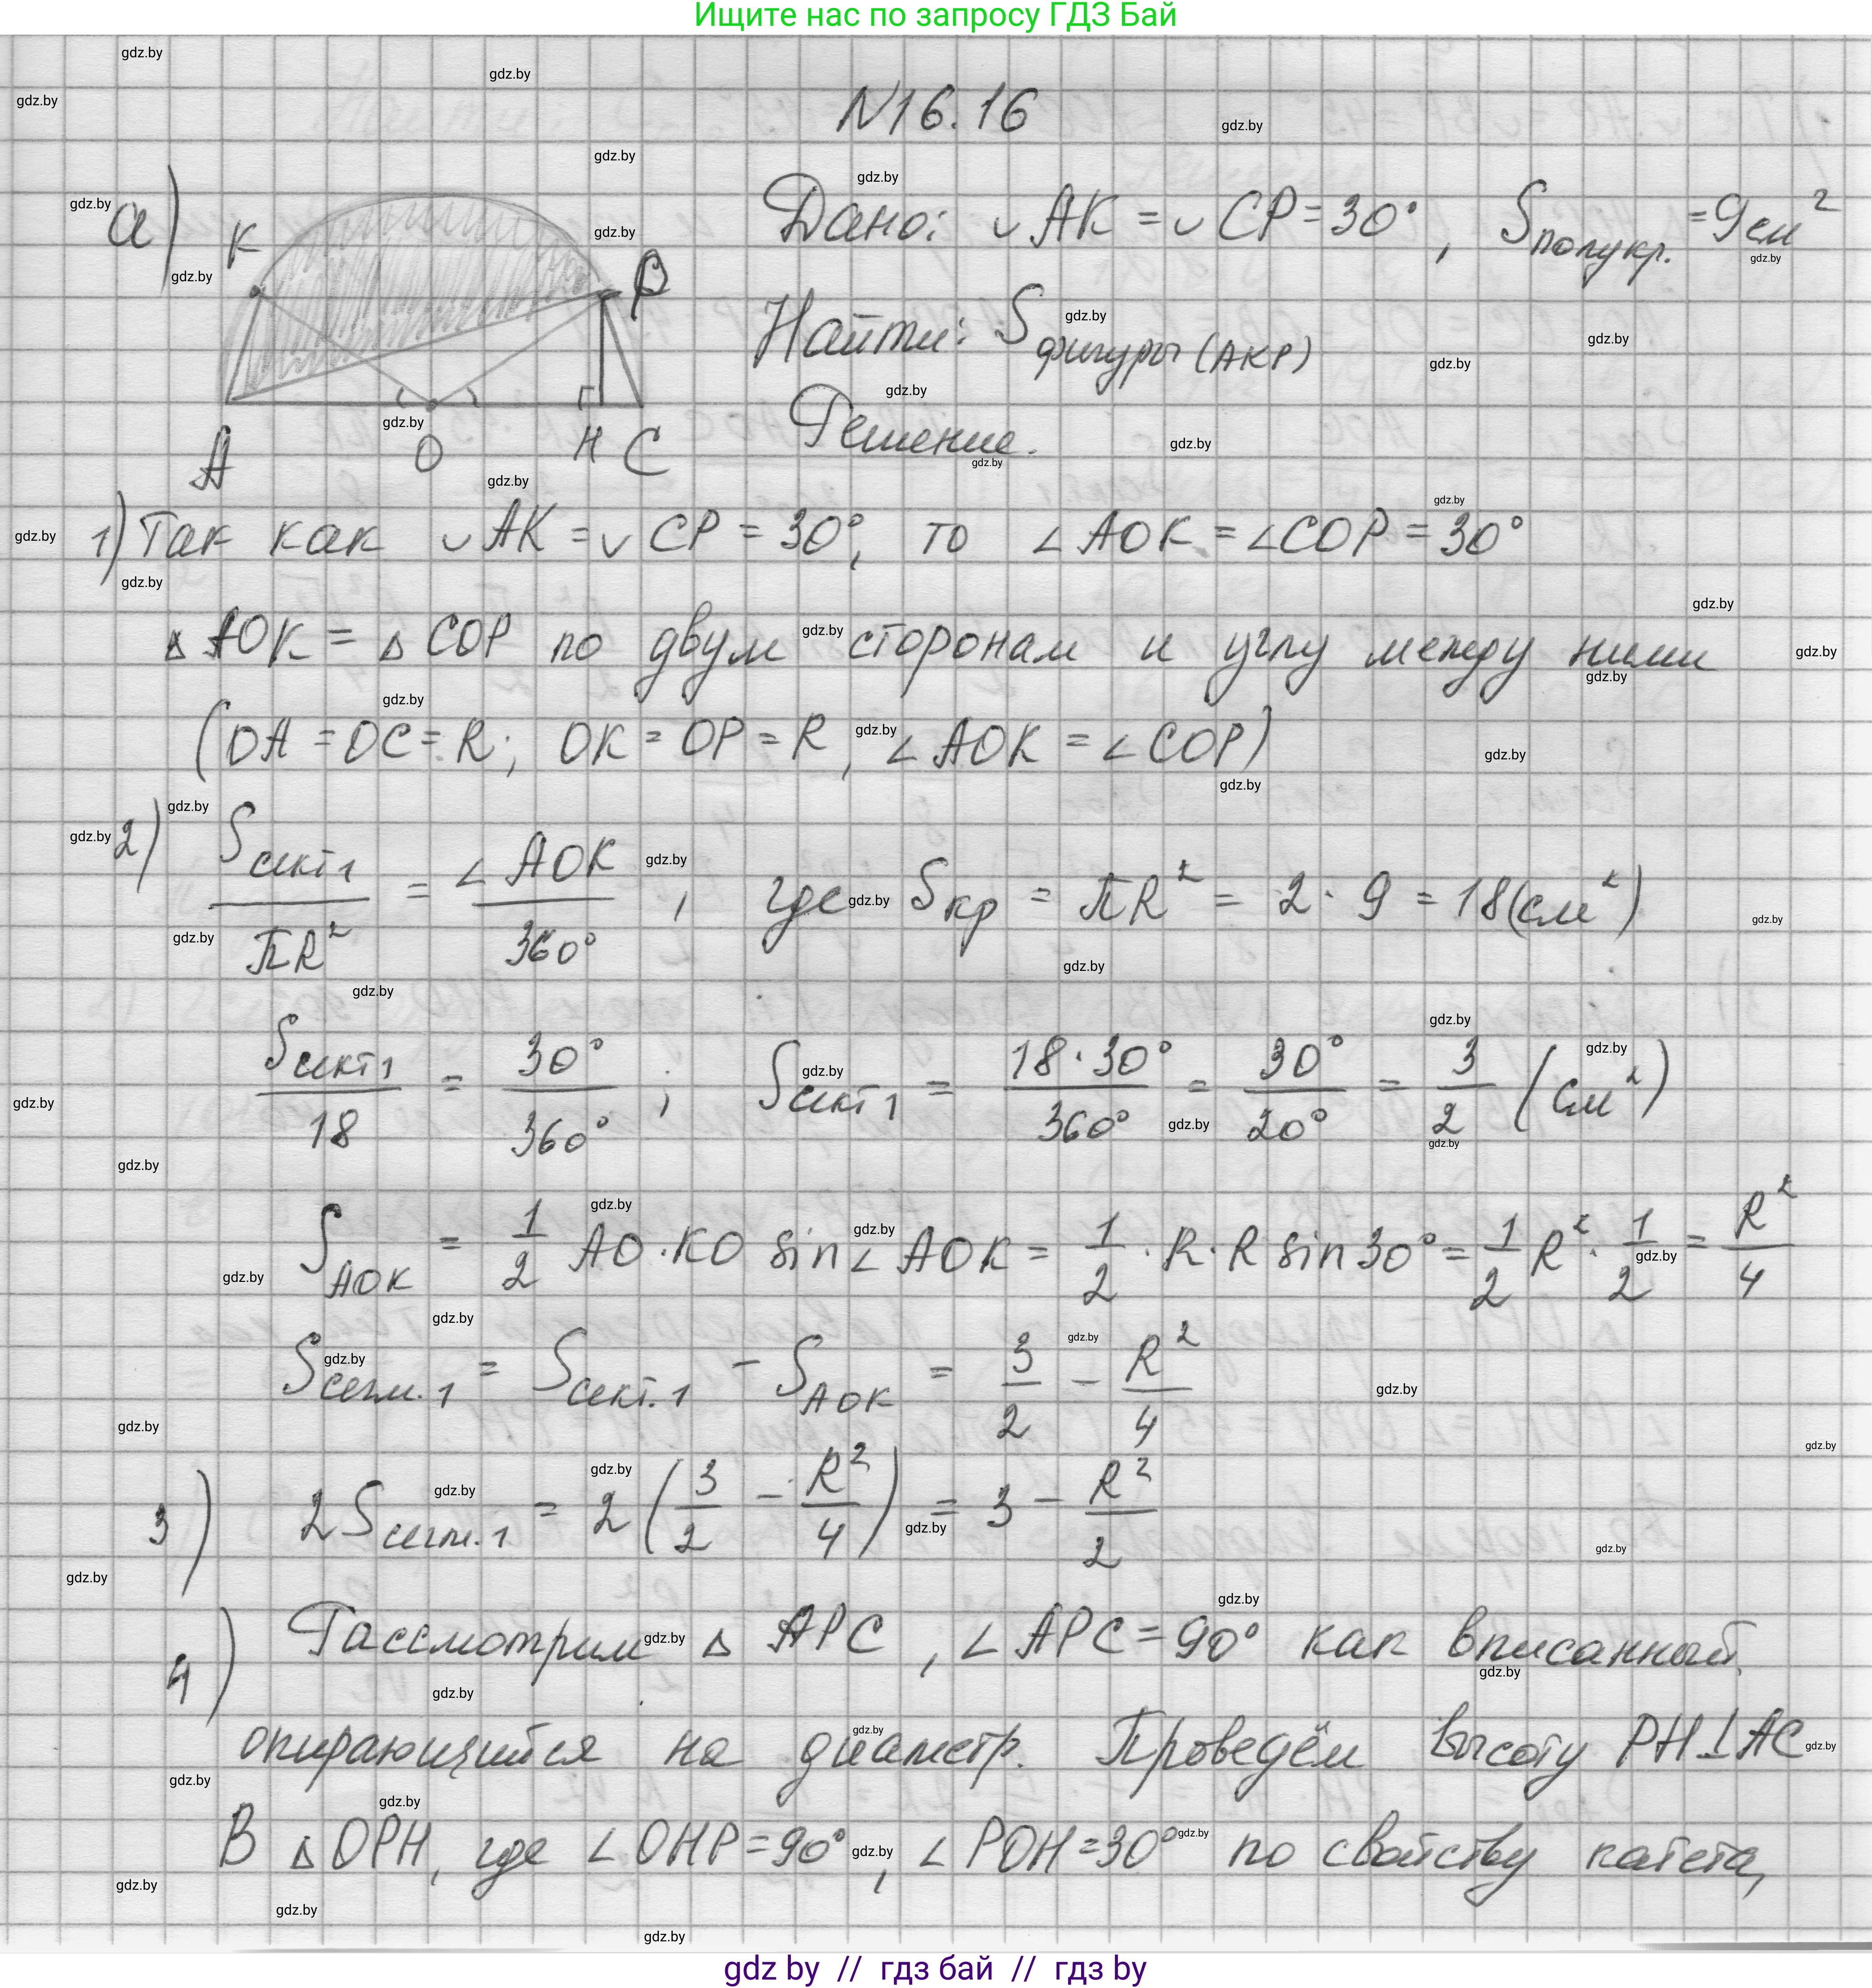 Ищите нас по запросу ГДЗ Бай
N16.16
а)
K
P
A
O
H
C
Дано: ◡AK = ◡CP = 30°, Sполукр. = 9см²
Найти: Sфигуры (AKP)
Решение.
1) Так как ◡AK = ◡CP = 30°, то ∠AOK = ∠COP = 30°
△AOK = △COP по двум сторонам и углу между ними
(OA = OC = R; OK = OP = R, ∠AOK = ∠COP)
2) Sсект1/πR² = ∠AOK/360°, где Sкр = πR² = 2·9 = 18(см²)
Sсект1/18 = 30°/360°; Sсект1 = 18·30°/360° = 30°/20° = 3/2 (см²)
SAOK = 1/2 AO·KO sin∠AOK = 1/2·R·R sin30° = 1/2 R²·1/2 = R²/4
Sсегм.1 = Sсект.1 - SAOK = 3/2 - R²/4
3) 2Sсегм.1 = 2(3/2 - R²/4) = 3 - R²/2
4) Рассмотрим △APC, ∠APC = 90° как вписанный,
опирающийся на диаметр. Проведём высоту PH⊥AC
В △OPH, где ∠OHP = 90°, ∠POH = 30° по свойству катета,
gdz by // гдз бай // гдз by